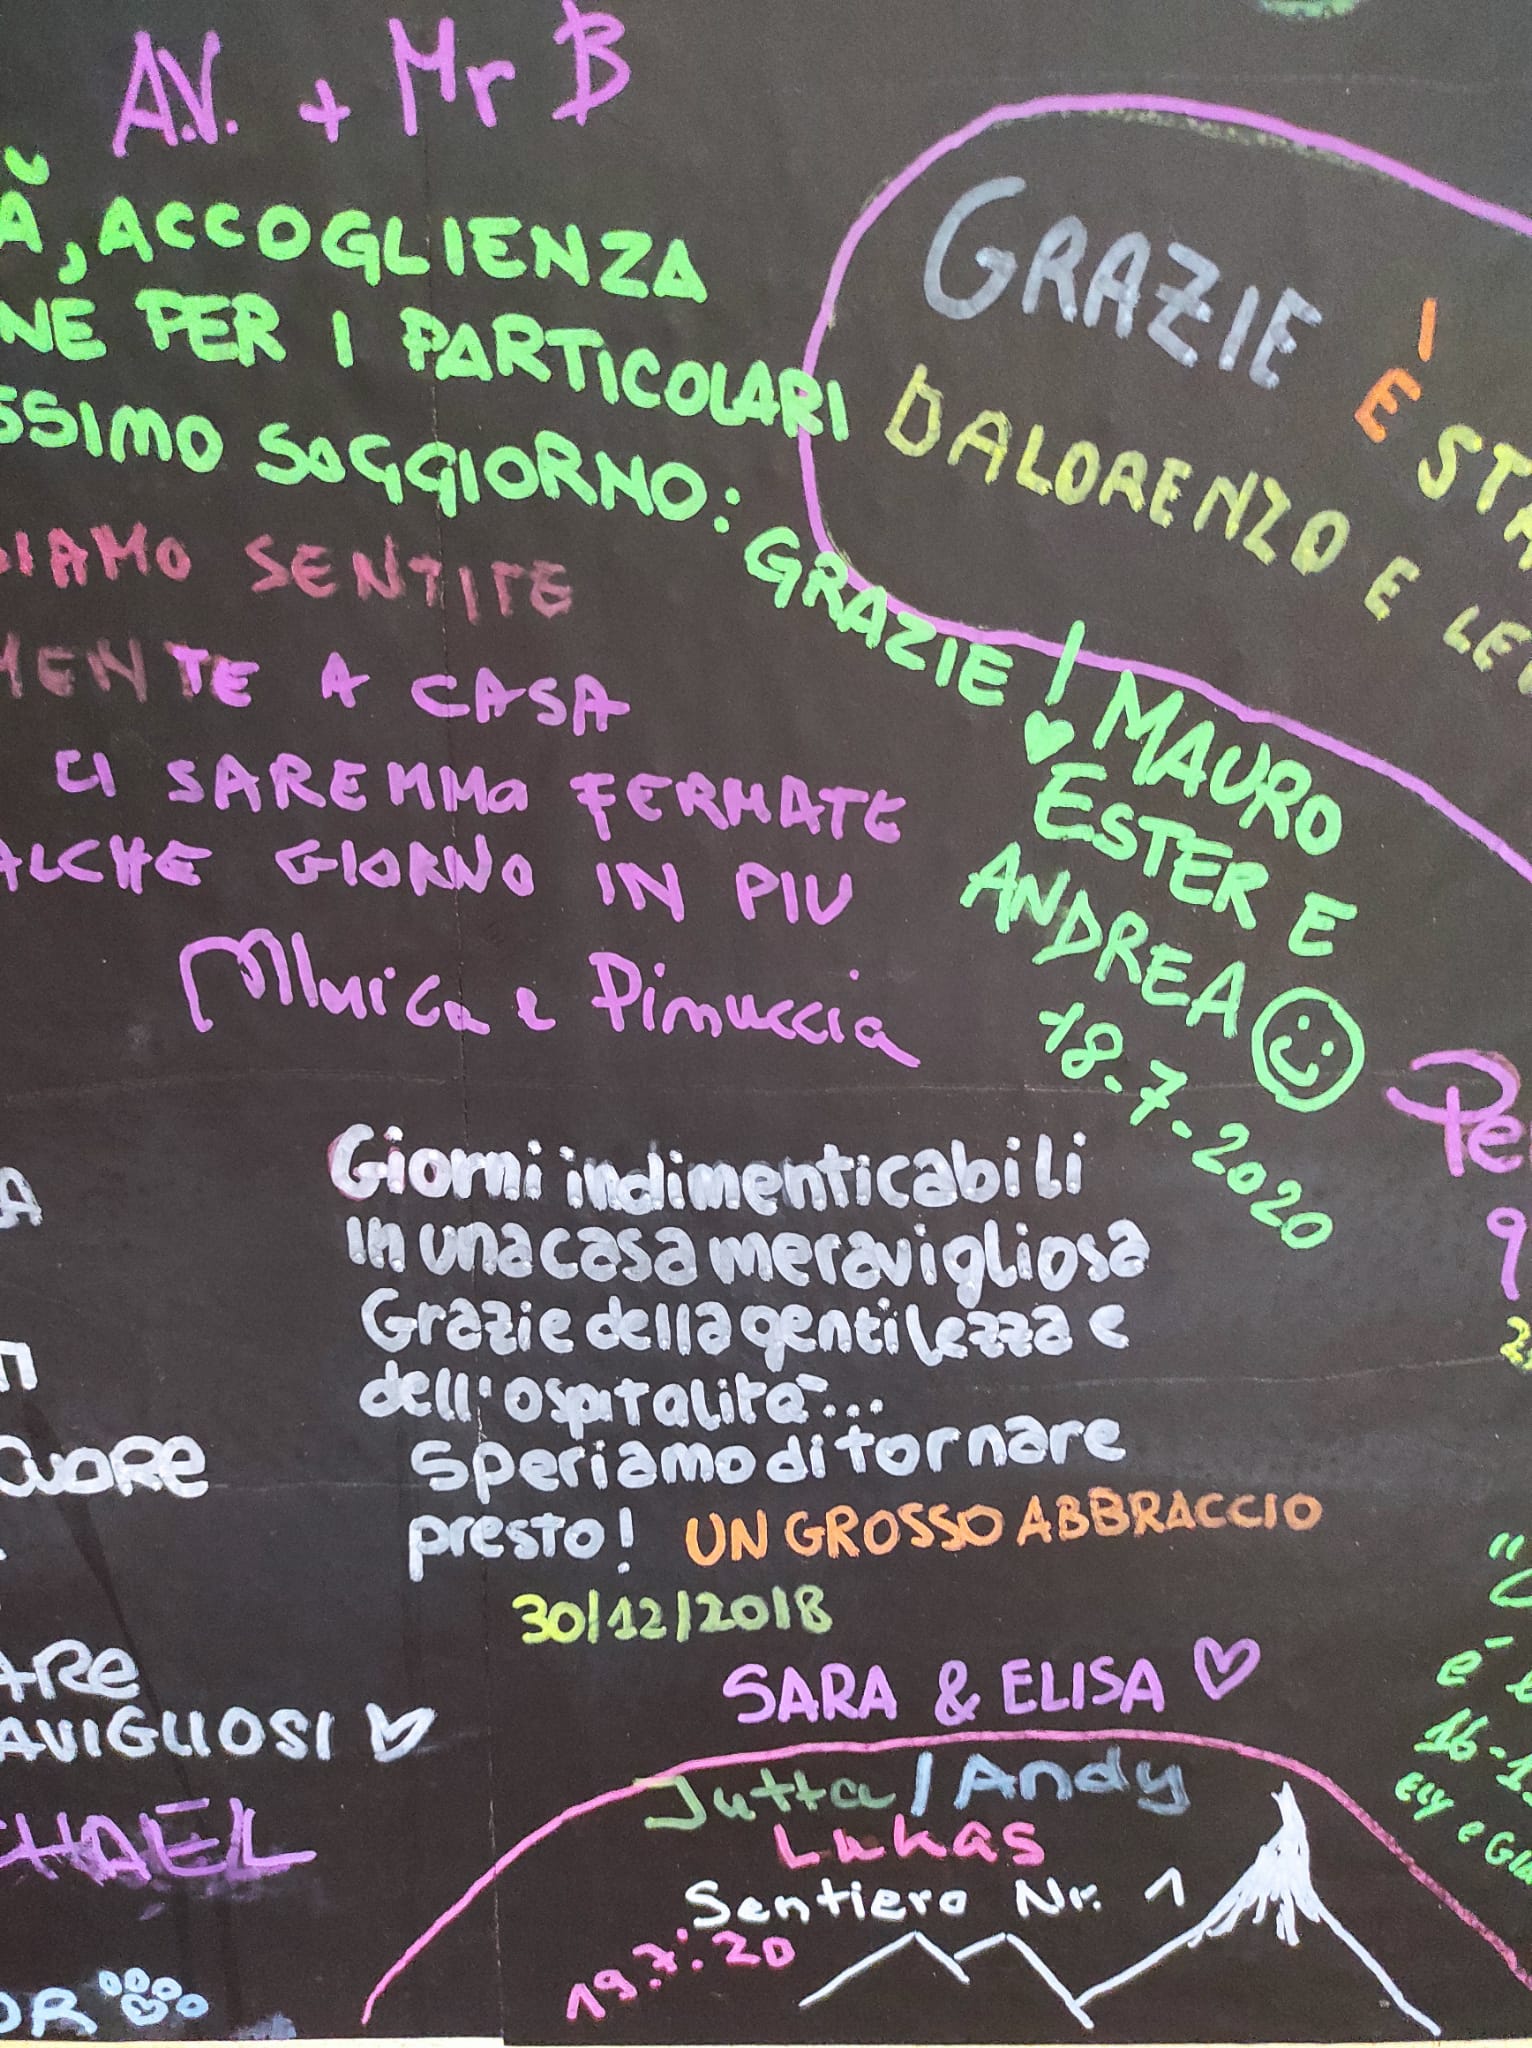 A.V. + Mr B
À, ACCOGLIENZA
NE PER I PARTICOLARI
SSIMO SOGGIORNO:
GRAZIE!
MAURO
ESTER E
ANDREA
18-7-2020
GRAZIE
DA LORENZO E
IAMO SENTITE
MENTE A CASA
CI SAREMMO FERMATE
ALCHE GIORNO IN PIU
e Pinuccia
Giorni indimenticabili
in una casa meravigliosa
Grazie della gentilezza e
dell'ospitalità...
speriamo di tornare
presto! UN GROSSO ABBRACCIO
30/12/2018
SARA & ELISA
Jutta / Andy
Lukas
Sentiero Nr. 1
19.7.'20
CUORE
ARE
AVIGLIOSI
CHAEL
OR
è
16-1
Ely e